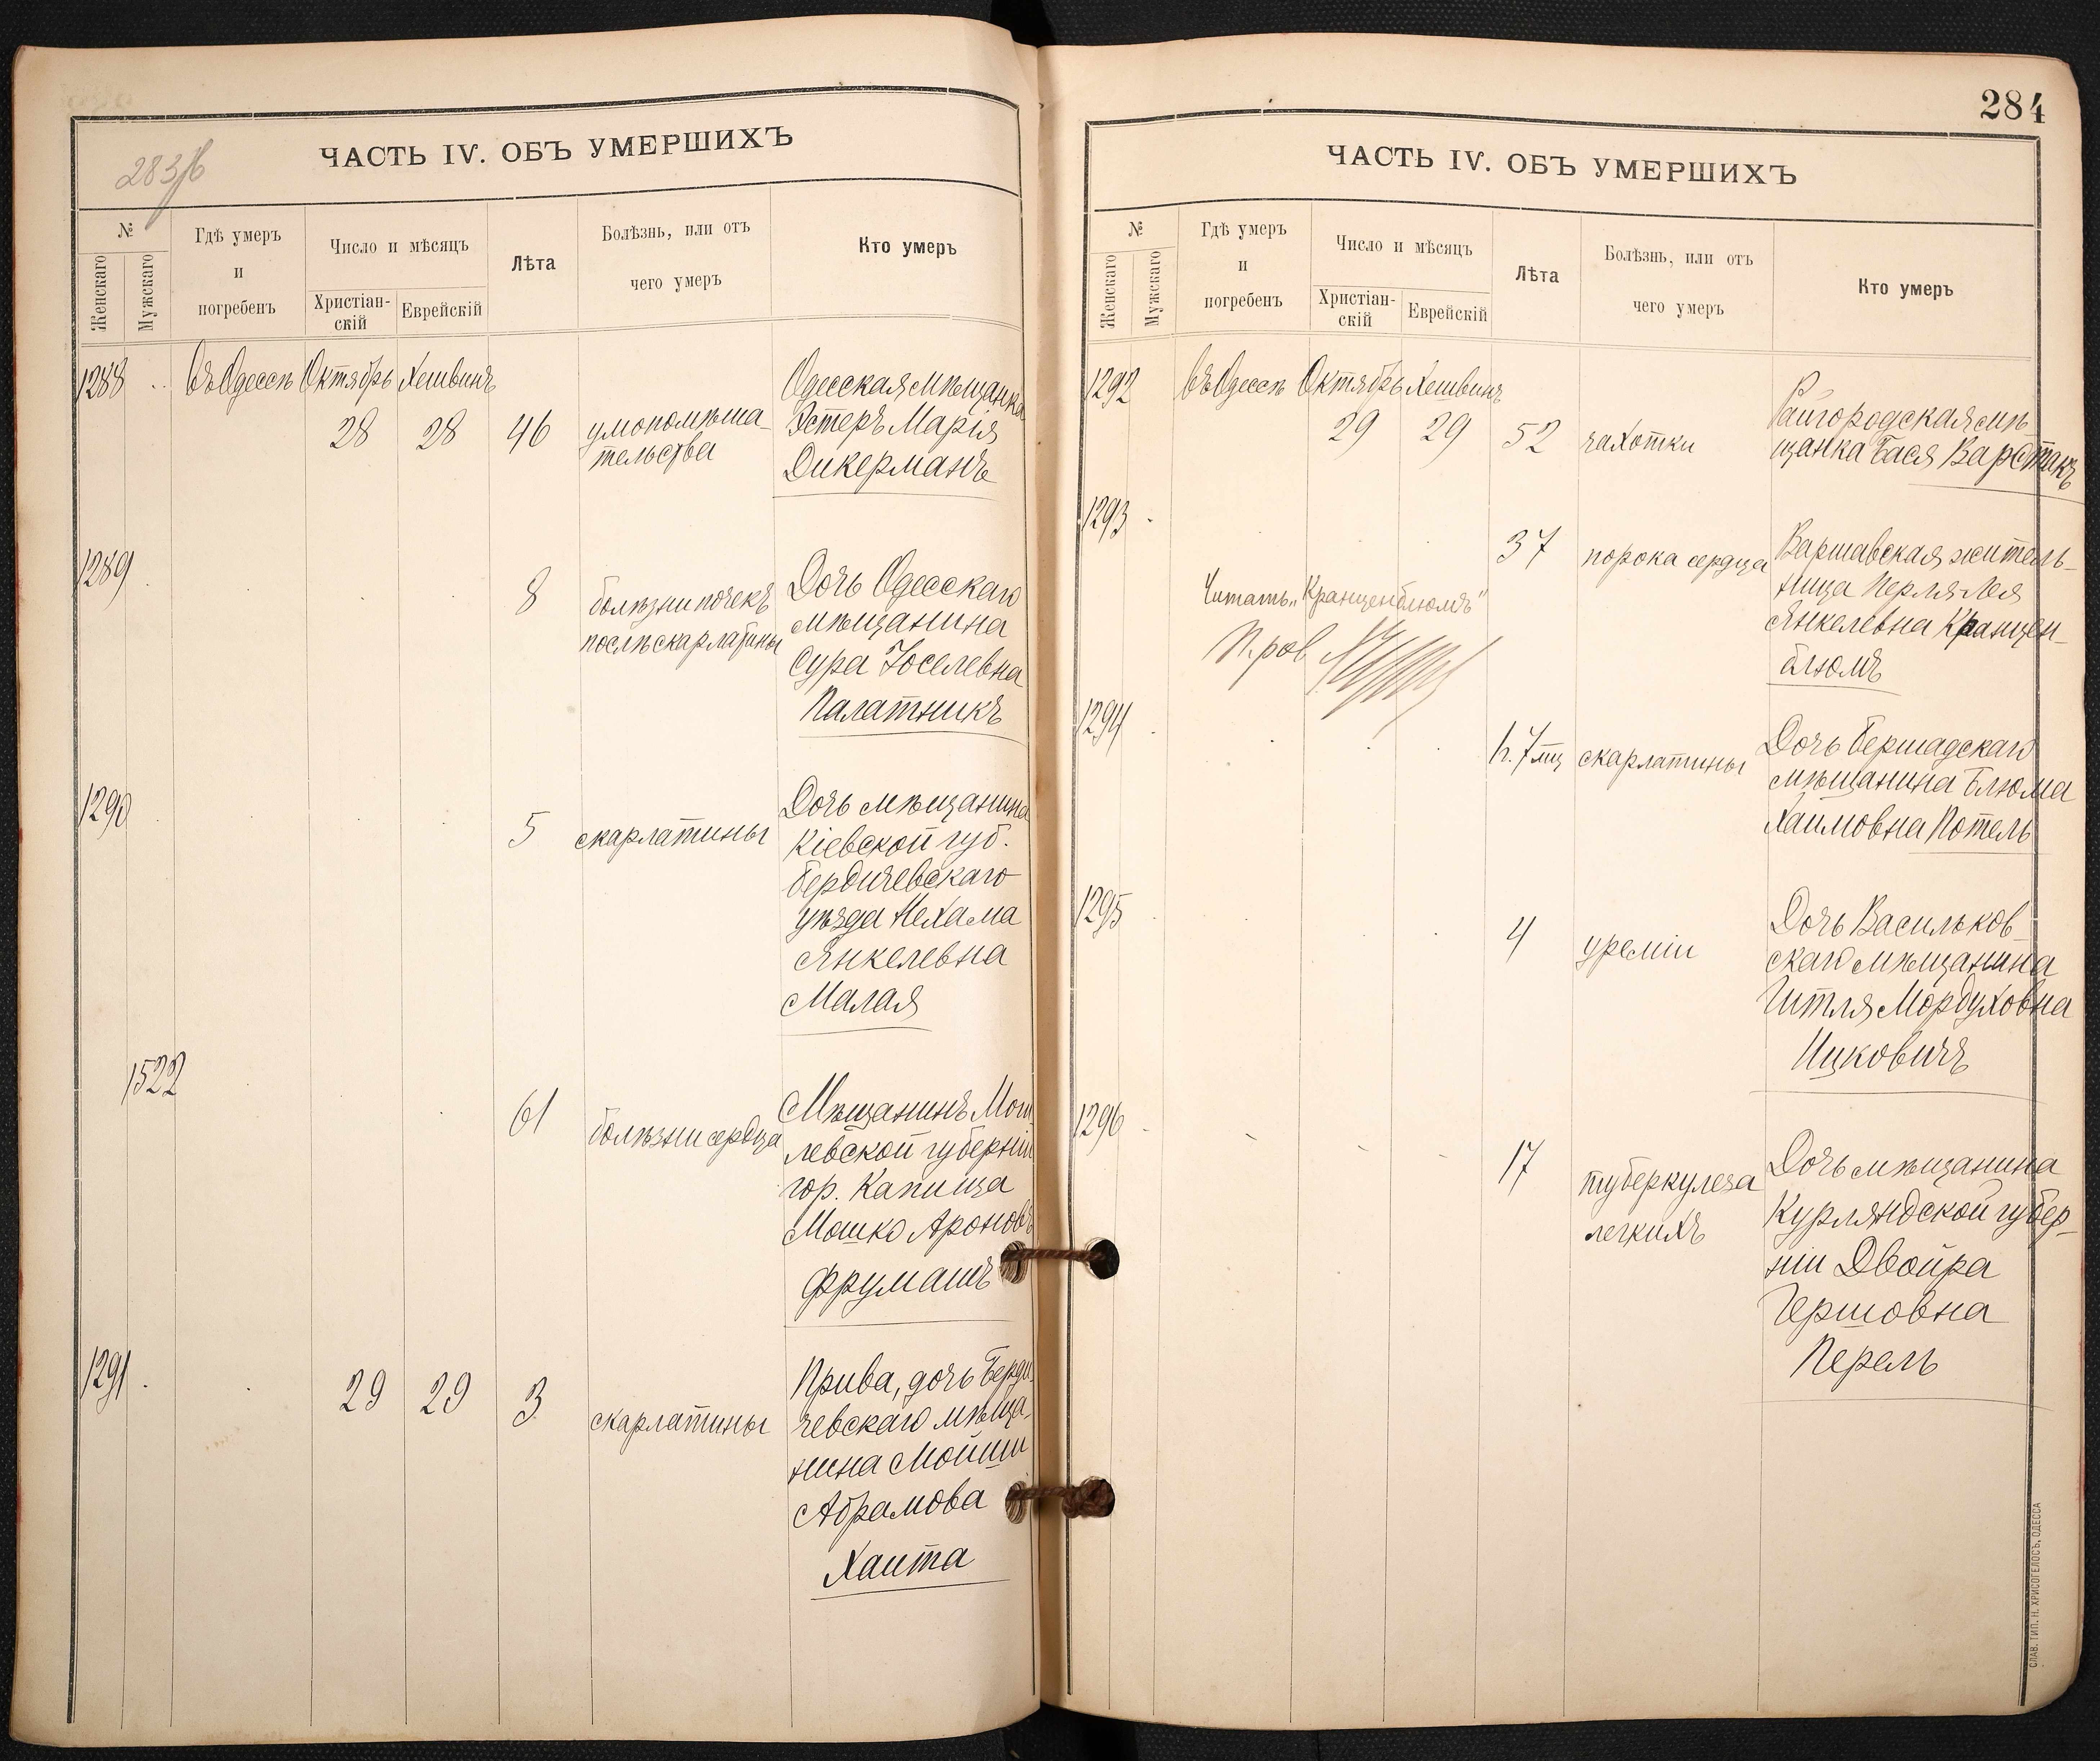 283/6
ЧАСТЬ IV. ОБЪ УМЕРШИХЪ
№
Женскаго
Мужскаго
Гдѣ умеръ
и
погребенъ
Число и мѣсяцъ
Христіан-
скій
Еврейскій
Лѣта
Болѣзнь, или отъ
чего умеръ
Кто умеръ
1288 въ Одессѣ Октябрь Хешвинъ Одесская мѣщанка
28 28 46 умопомѣша- Эстеръ Марія
тельства Дикерманъ
1289
8 болѣзни почекъ Дочь Одесскаго
послѣ скарлатины мѣщанина
Сура Іоселевна
Палатникъ
1290 Дочь мѣщанина
5 скарлатины Кіевской губ.
Бердичевскаго
уѣзда Нехама
Янкелевна
Малая
1522
61 болѣзни сердца Мѣщанинъ Моги
левской губерніи
гор. Капища
Мошко Ароновъ
Фруманъ
1291 29 29 3 скарлатины Прива, дочь Берди
чевскаго мѣща-
нина Мойши
Абрамова
Хаита
284
ЧАСТЬ IV. ОБЪ УМЕРШИХЪ
№
Женскаго
Мужскаго
Гдѣ умеръ
и
погребенъ
Число и мѣсяцъ
Христіан-
скій
Еврейскій
Лѣта
Болѣзнь, или отъ
чего умеръ
Кто умеръ
1292 въ Одессѣ Октябрь Хешвинъ
29 29 52 чахотки Райгородская мѣ
щанка Бася Варстакъ
1293
37 порока сердца Варшавская житель-
ница Перля-Лея
Янкелевна Кранцен-
блюмъ
Читать „Кранценблюмъ"
1294
7 мц скарлатины Дочь Бершадскаго
мѣщанина Блюма
Хаимовна Потель
1295
4 уреміи Дочь Васильков
скаго мѣщанина
Гитля Мордуховна
Ицковичъ
1296
17 туберкулеза Дочь мѣщанина
легкихъ Курляндской губер-
ніи Двойра
Гершовна
Перель
СЛАВ. ТИП. Н. ХРИСОГЕЛОСЪ, ОДЕССА